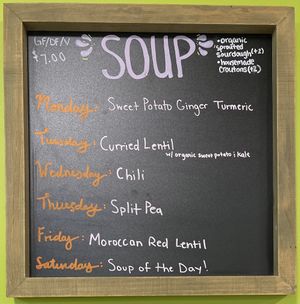 GF/DF/V
$7.00
SOUP
• organic
sprouted
sourdough! (+2)
• housemade
croutons (+2)
Monday: Sweet Potato Ginger Turmeric
Tuesday: Curried Lentil
w/ organic sweet potato & kale
Wednesday: Chili
Thursday: Split Pea
Friday: Moroccan Red Lentil
Saturday: Soup of the Day!